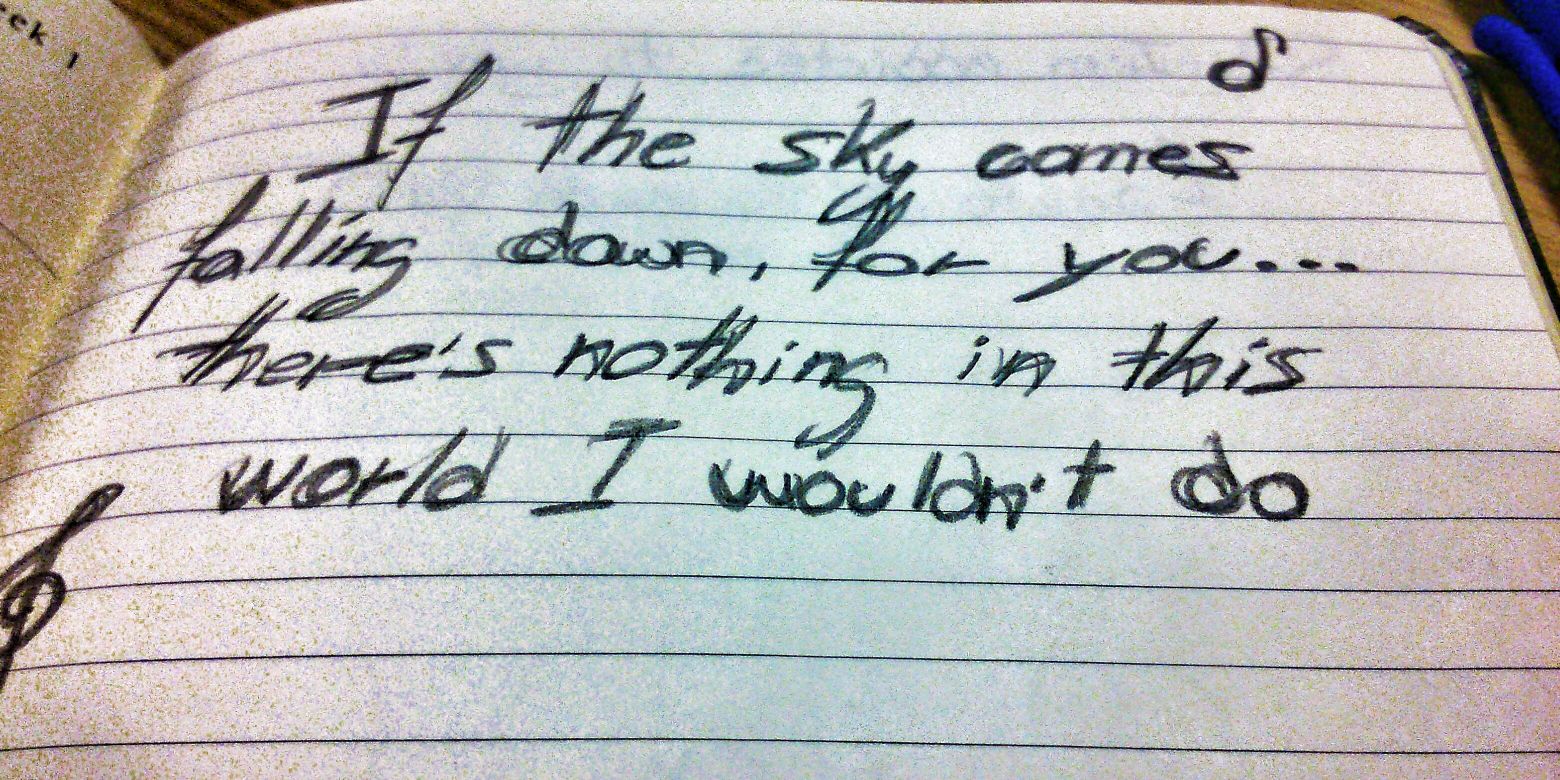 If the sky comes
falling down, for you...
there's nothing in this
world I wouldn't do